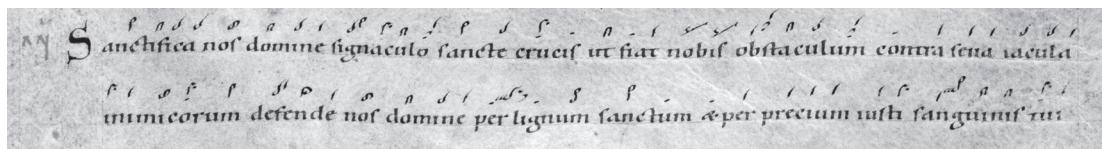 Sanctifica nos domine signaculo sancte crucis ut fiat nobis obstaculum contra seua iacula
inimicorum defende nos domine per lignum sanctum & per precium iusti sanguinis tui